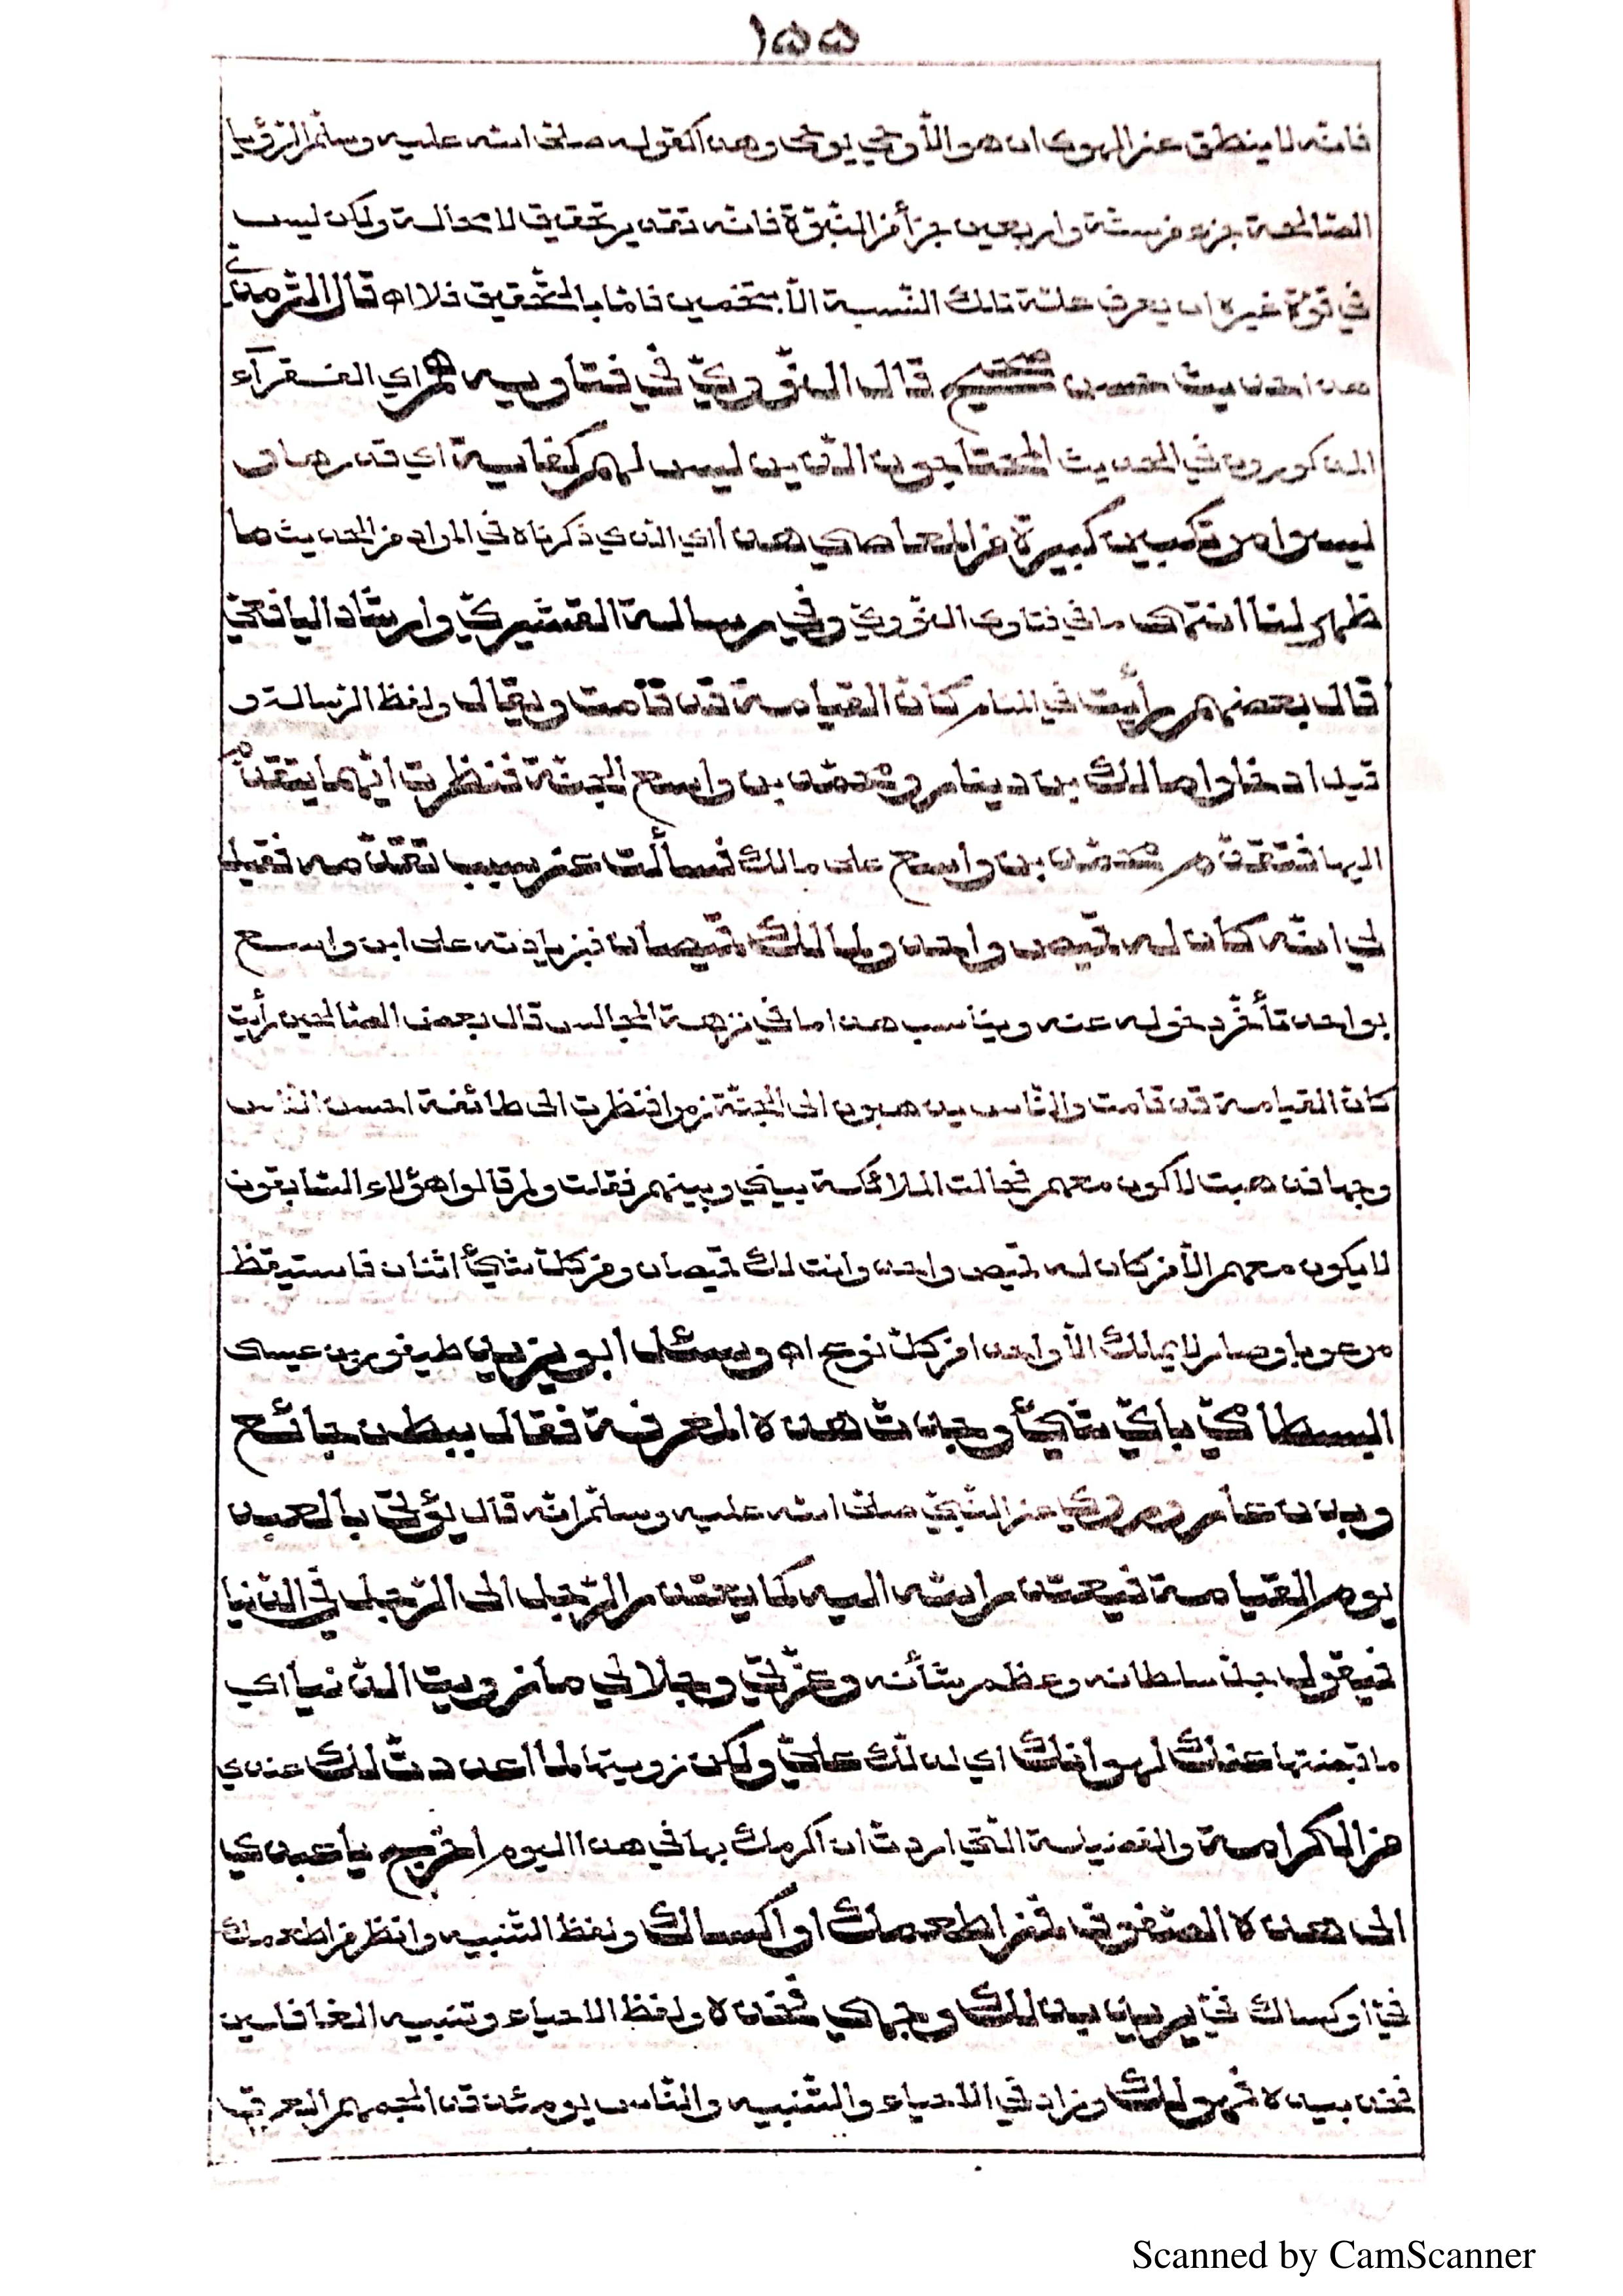 ١٥٥
فانّه لا ينطق عن الهوى ان هو الّا وحي يوحى وهذا كقوله صلّى الله عليه وسلّم الرّؤيا
الصّالحة جزء من ستّة واربعين جزأ من النّبوّة فانّه تقدير تحقيق لا محالة ولكن ليس
في قوّة غيره ان يعرف علّة تلك النّسبة الّا بتخمين فامّا بالتّحقيق فلا اه قال التّرمذي
هذا حديث حسن صحيح قال النّووي في فتاويه هم اي الفقرآء
المذكورون في الحديث المحتاجون الّذين ليس لهم كفاية اي قدرها و
ليسوا مرتكبين كبيرة من المعاصي هذا اي الّذي ذكرناه في المراد من الحديث ما
ظهر لنا انتهى ما في فتاوى النّووي وفي رسالة القشيري وارشاد اليافعي
قال بعضهم رأيت في المنام كانّ القيامة قد قامت ويقال ولفظ الرّسالة و
قيل ادخلوا مالك بن دينار ومحمّد بن واسع الجنّة فنظرت ايّهما يتقدّم
اليها فتقدّم محمّد بن واسع على مالك فسألت عن سبب تقدّمه فقيل
لي انّه كان له قميص واحد ولمالك قميصان فبزيادته على ابن واسع
بواحد تأخّر دخوله عنه ويناسب هذا ما في نزهة المجالس قال بعض الصّالحين رأيت
كانّ القيامة قد قامت والنّاس يذهبون الى الجنّة زمرا فنظرت الى طائفة احسن النّاس
وجها فذهبت لاكون معهم فحالت الملائكة بيني وبينهم فقلت ولم قالوا هؤلاء السّابقون
لا يكون معهم الّا من كان له قميص واحد وانت لك قميصان ومن كلّ شيئ اثنان فاستيقظ
مرعوبا وصار لا يملك الّا واحدا من كلّ نوع اه وسئل ابو يزيد طيفور بن عيسى
البسطامي بايّ شيئ وجدت هذه المعرفة فقال ببطن جائع
وبدن عار وروي عن النّبيّ صلّى الله عليه وسلّم انّه قال يؤتى بالعبد
يوم القيامة فيعتذر الله اليه كما يعتذر الرّجل الى الرّجل في الدّنيا
فيقول جلّ سلطانه وعظم شأنه وعزّتي وجلالي ما زويت الدّنيا اي
ما قبضتها عنك لهوانك اي لذلّك عليّ ولكن زويتها لما اعددت لك عندي
من الكرامة والفضيلة الّتي اردت ان اكرمك بها في هذا اليوم اخرج يا عبدي
الى هذه الصّفوف فمن اطعمك او اكساك ولفظ التّنبيه وانظر من اطعمك
فيّ او كساك فيّ يريد بذلك وجهي فخذه ولفظ الاحياء وتنبيه الغافلين
فخذ بيده فهو لك وزاد في الاحياء والتّنبيه والنّاس يومئذ قد الجمهم العرق
Scanned by CamScanner